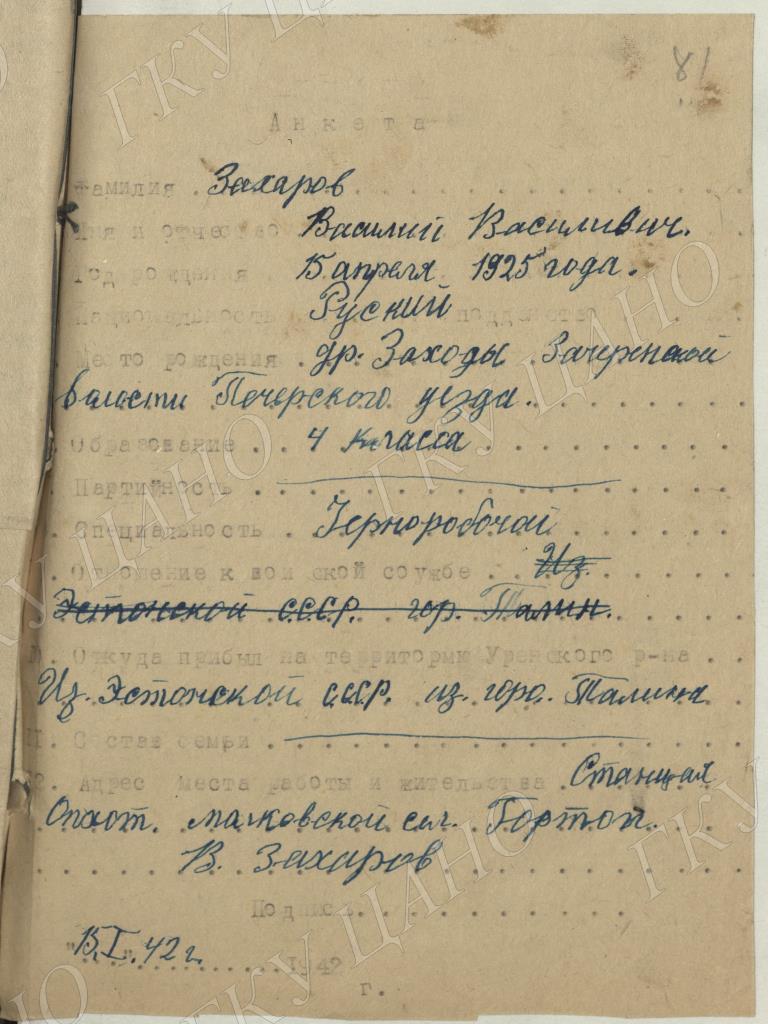 81
Анкета
Фамилия . Захаров
Имя и отчество Василий Василивич.
Год рождения . 15 апреля 1925 года.
Национальность Руский подданство
Место рождения . др. Заходы Зачеренской
валасти Печерского уезда.
Образование . . 4 класса
Партийность
Специальность . Черноробочай
Отношение к воинской службе . . Из.
Эстонской С.С.С.Р. гор. Талин.
Откуда прибыл на территорию Уренского р-на . .
Из. Эстонской С.С.С.Р. из. горо. Талина
11. Состав семьи
12. Адрес места работы и жительства . Станцыя
. сел. Гортоп.
В. Захаров
Подпись
15.I.42 г.
1942
г.
ГКУ ЦАНО